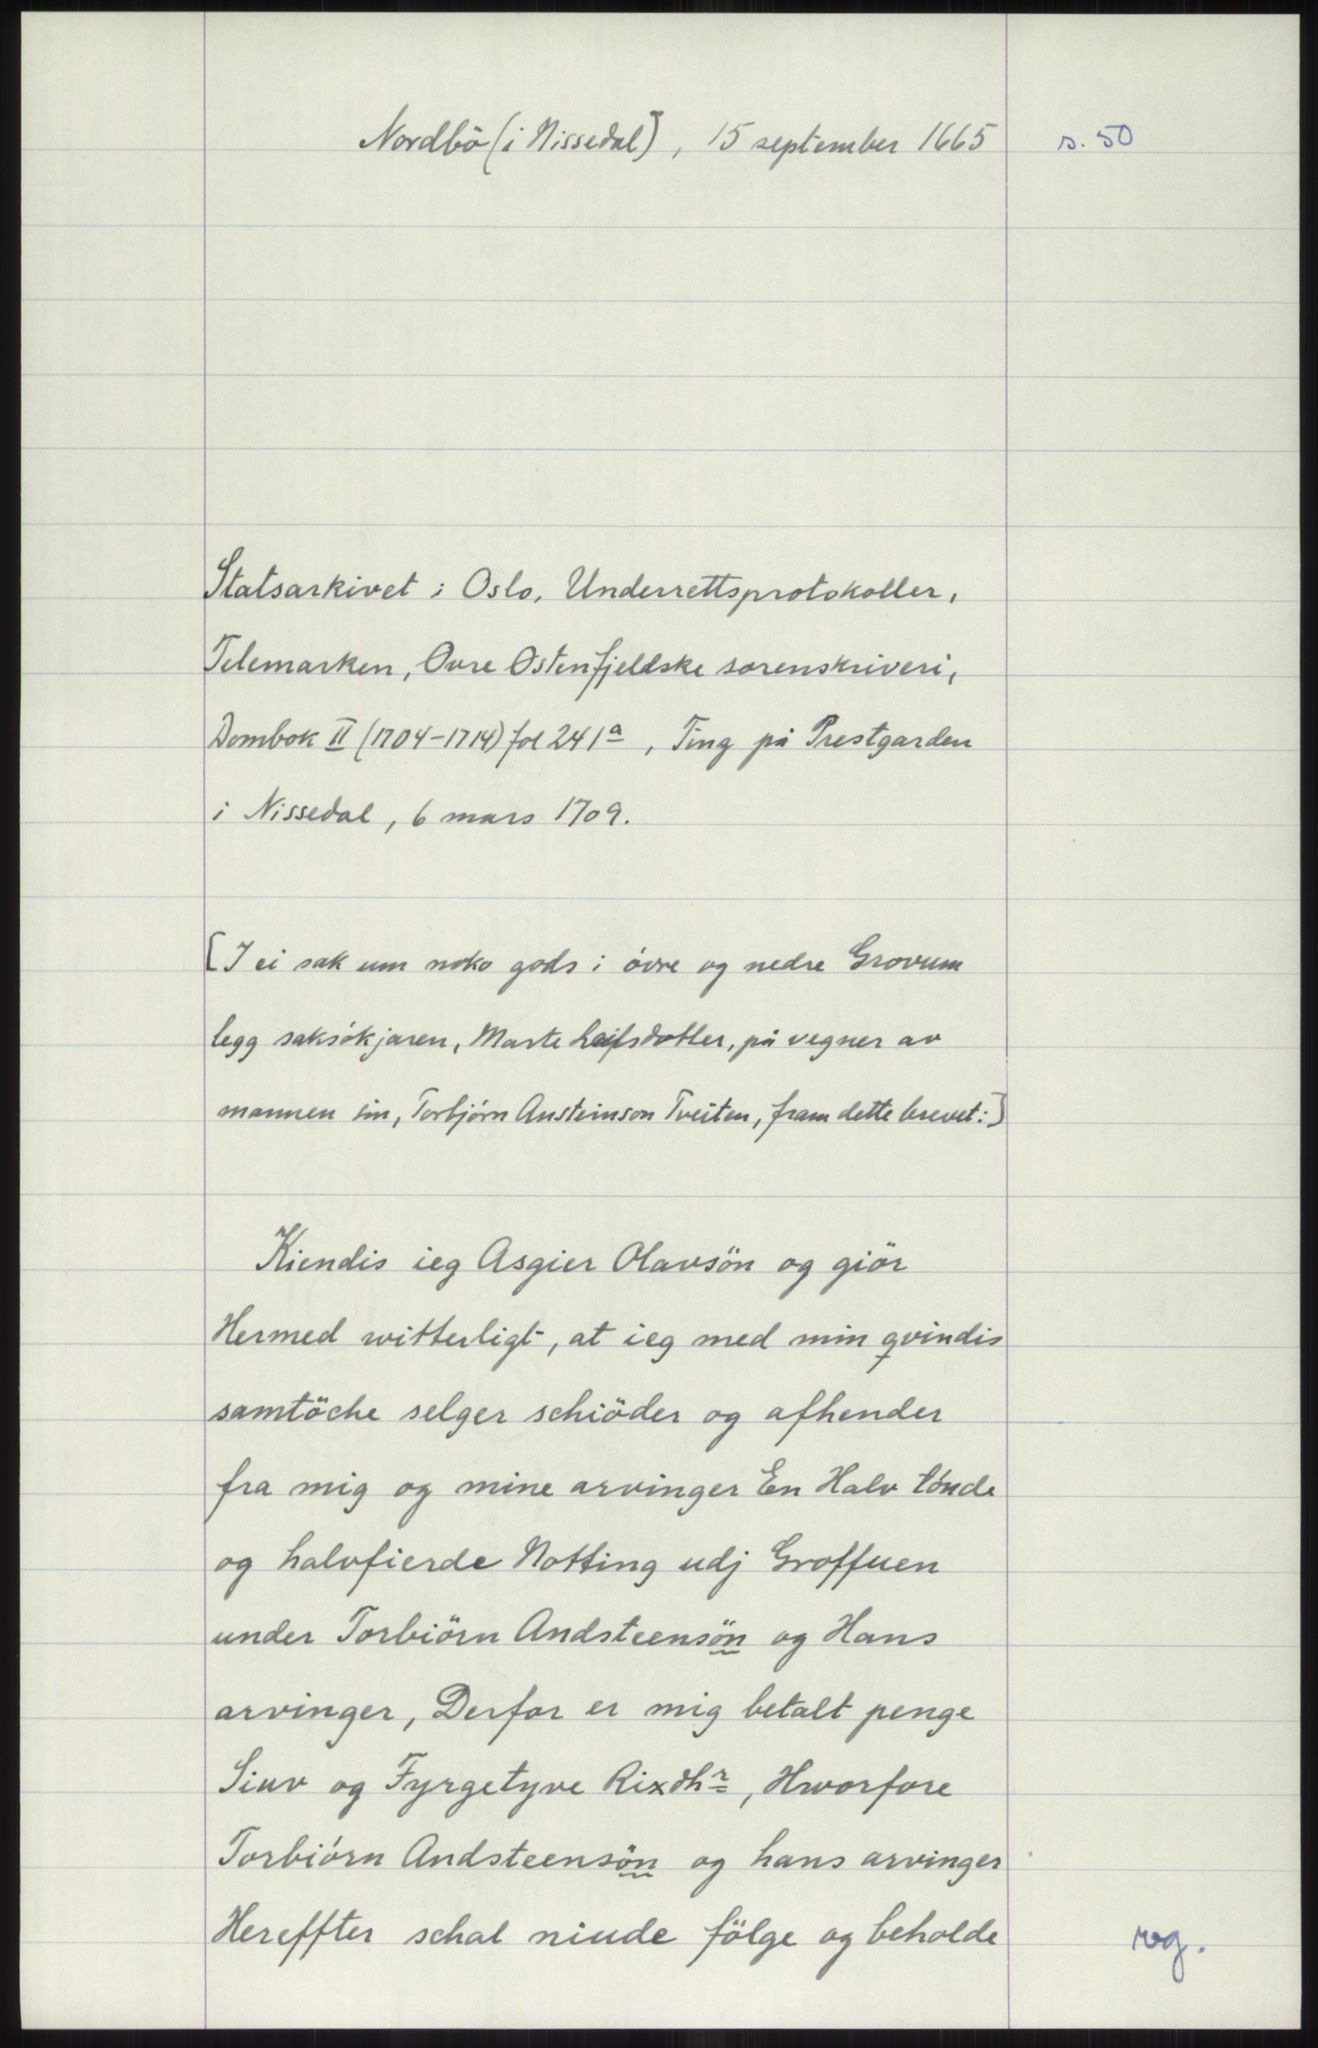 Nordbö (i Nissedal], 15 september 1665 s. 50
Statsarkivet i Oslo, Underrettsprotokoller,
Telemarken, Ovre Ostenfjeldske sorenskriveri,
Dombok II (1704-1714) fol 241a, Ting på Prestgarden
i Nissedal, 6 mars 1709.
[I ei sak um noko gods i óvre og nedre Grovum
legg saksókjaren, Marte Leifsdotter, på vegner av
mannen sin, Torbjórn Austeinson Tveiten, fram dette brevet:]
Kiendis ieg Asgier Olavsön og giör
Hermed witterligt, at ieg med min qvindis
samtöche selger schiöder og afhender
fra mig og mine arvinger En Halv tónde
og halvfierde Notting udj Groffuen
under Torbiörn Andsteensön og Hans
arvinger, Derfor er mig betalt penge
Siuv og Fyrgetyve Rixdhr, Hworfore
Torbiórn Andsteensön og hans arvinger
Hereffter schal niude fölge og beholde
reg.